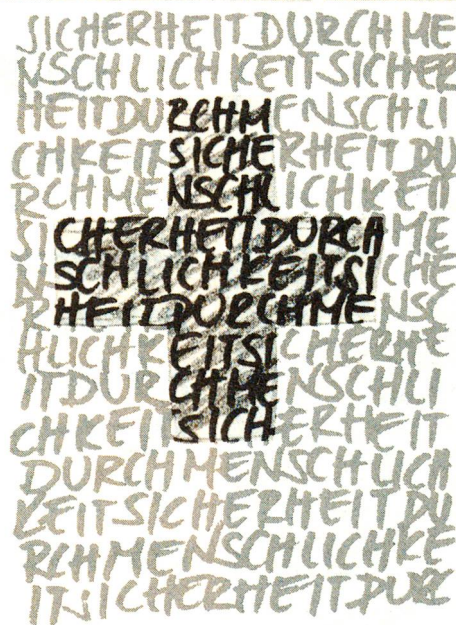 SICHERHEITDURCHME
NSCHLICHKEITSICHER
HEITDURCHMENSCHLI
CHKEITSICHERHEITDU
RCHMENSCHLICHKEIT
SICHERHEITDURCHME
NSCHLICHKEITSICHE
RHEITDURCHMENSC
HLICHKEITSICHERHE
ITDURCHMENSCHLI
CHKEITSICHERHEIT
DURCHMENSCHLICH
KEITSICHERHEITDU
RCHMENSCHLICHKE
ITSICHERHEITDURC